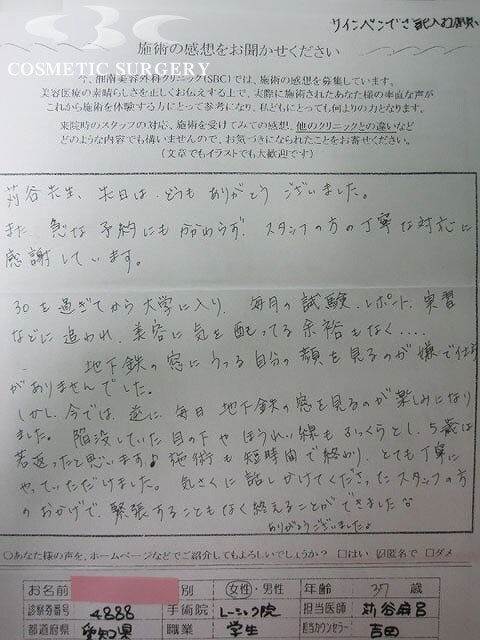 SBC
COSMETIC SURGERY
サインペンでご記入お願い
施術の感想をお聞かせください
今、湘南美容外科クリニック(SBC)では、施術の感想を募集しています。
美容医療の素晴らしさを正しくお伝えする上で、実際に施術されたあなた様の率直な声が
これから施術を体験する方にとって参考になり、私どもにとっても何よりの力となります。
来院時のスタッフの対応、施術を受けてみての感想、他のクリニックとの違いなど
どのような内容でも構いませんので、お気づきになられたことをお寄せください。
(文章でもイラストでも大歓迎です)
苅谷先生、先日は、どうも ありがとう ございました。
また、急な予約にも かかわらず、スタッフの方の丁寧な対応に
感謝しています。
30を過ぎてから大学に入り、毎月の試験、レポート、実習
などに追われ、美容に気を配ってる余裕もなく‥‥
地下鉄の窓にうつる自分の顔を見るのが嫌で仕方
がありませんでした。
しかし、今では、逆に、毎日 地下鉄の窓を見るのが楽しみになり
ました。陥没していた目の下や ほうれい線もふっくらとし、5歳は
若返ったと思います♪ 施術も短時間で終わり、とても丁寧に
やっていただけました。気さくに話しかけてくださったスタッフの方
のおかげで、緊張することもなく終えることができました
ありがとうございました♪
○あなた様の声を、ホームページなどでご紹介してもよろしいでしょうか? □はい ☑匿名で □ダメ
お名前 別 女性・男性 年齢 37 歳
診察券番号 4888 手術院 担当医師 苅谷
都道府県 愛知県 職業 学生 担当カウンセラー 吉田